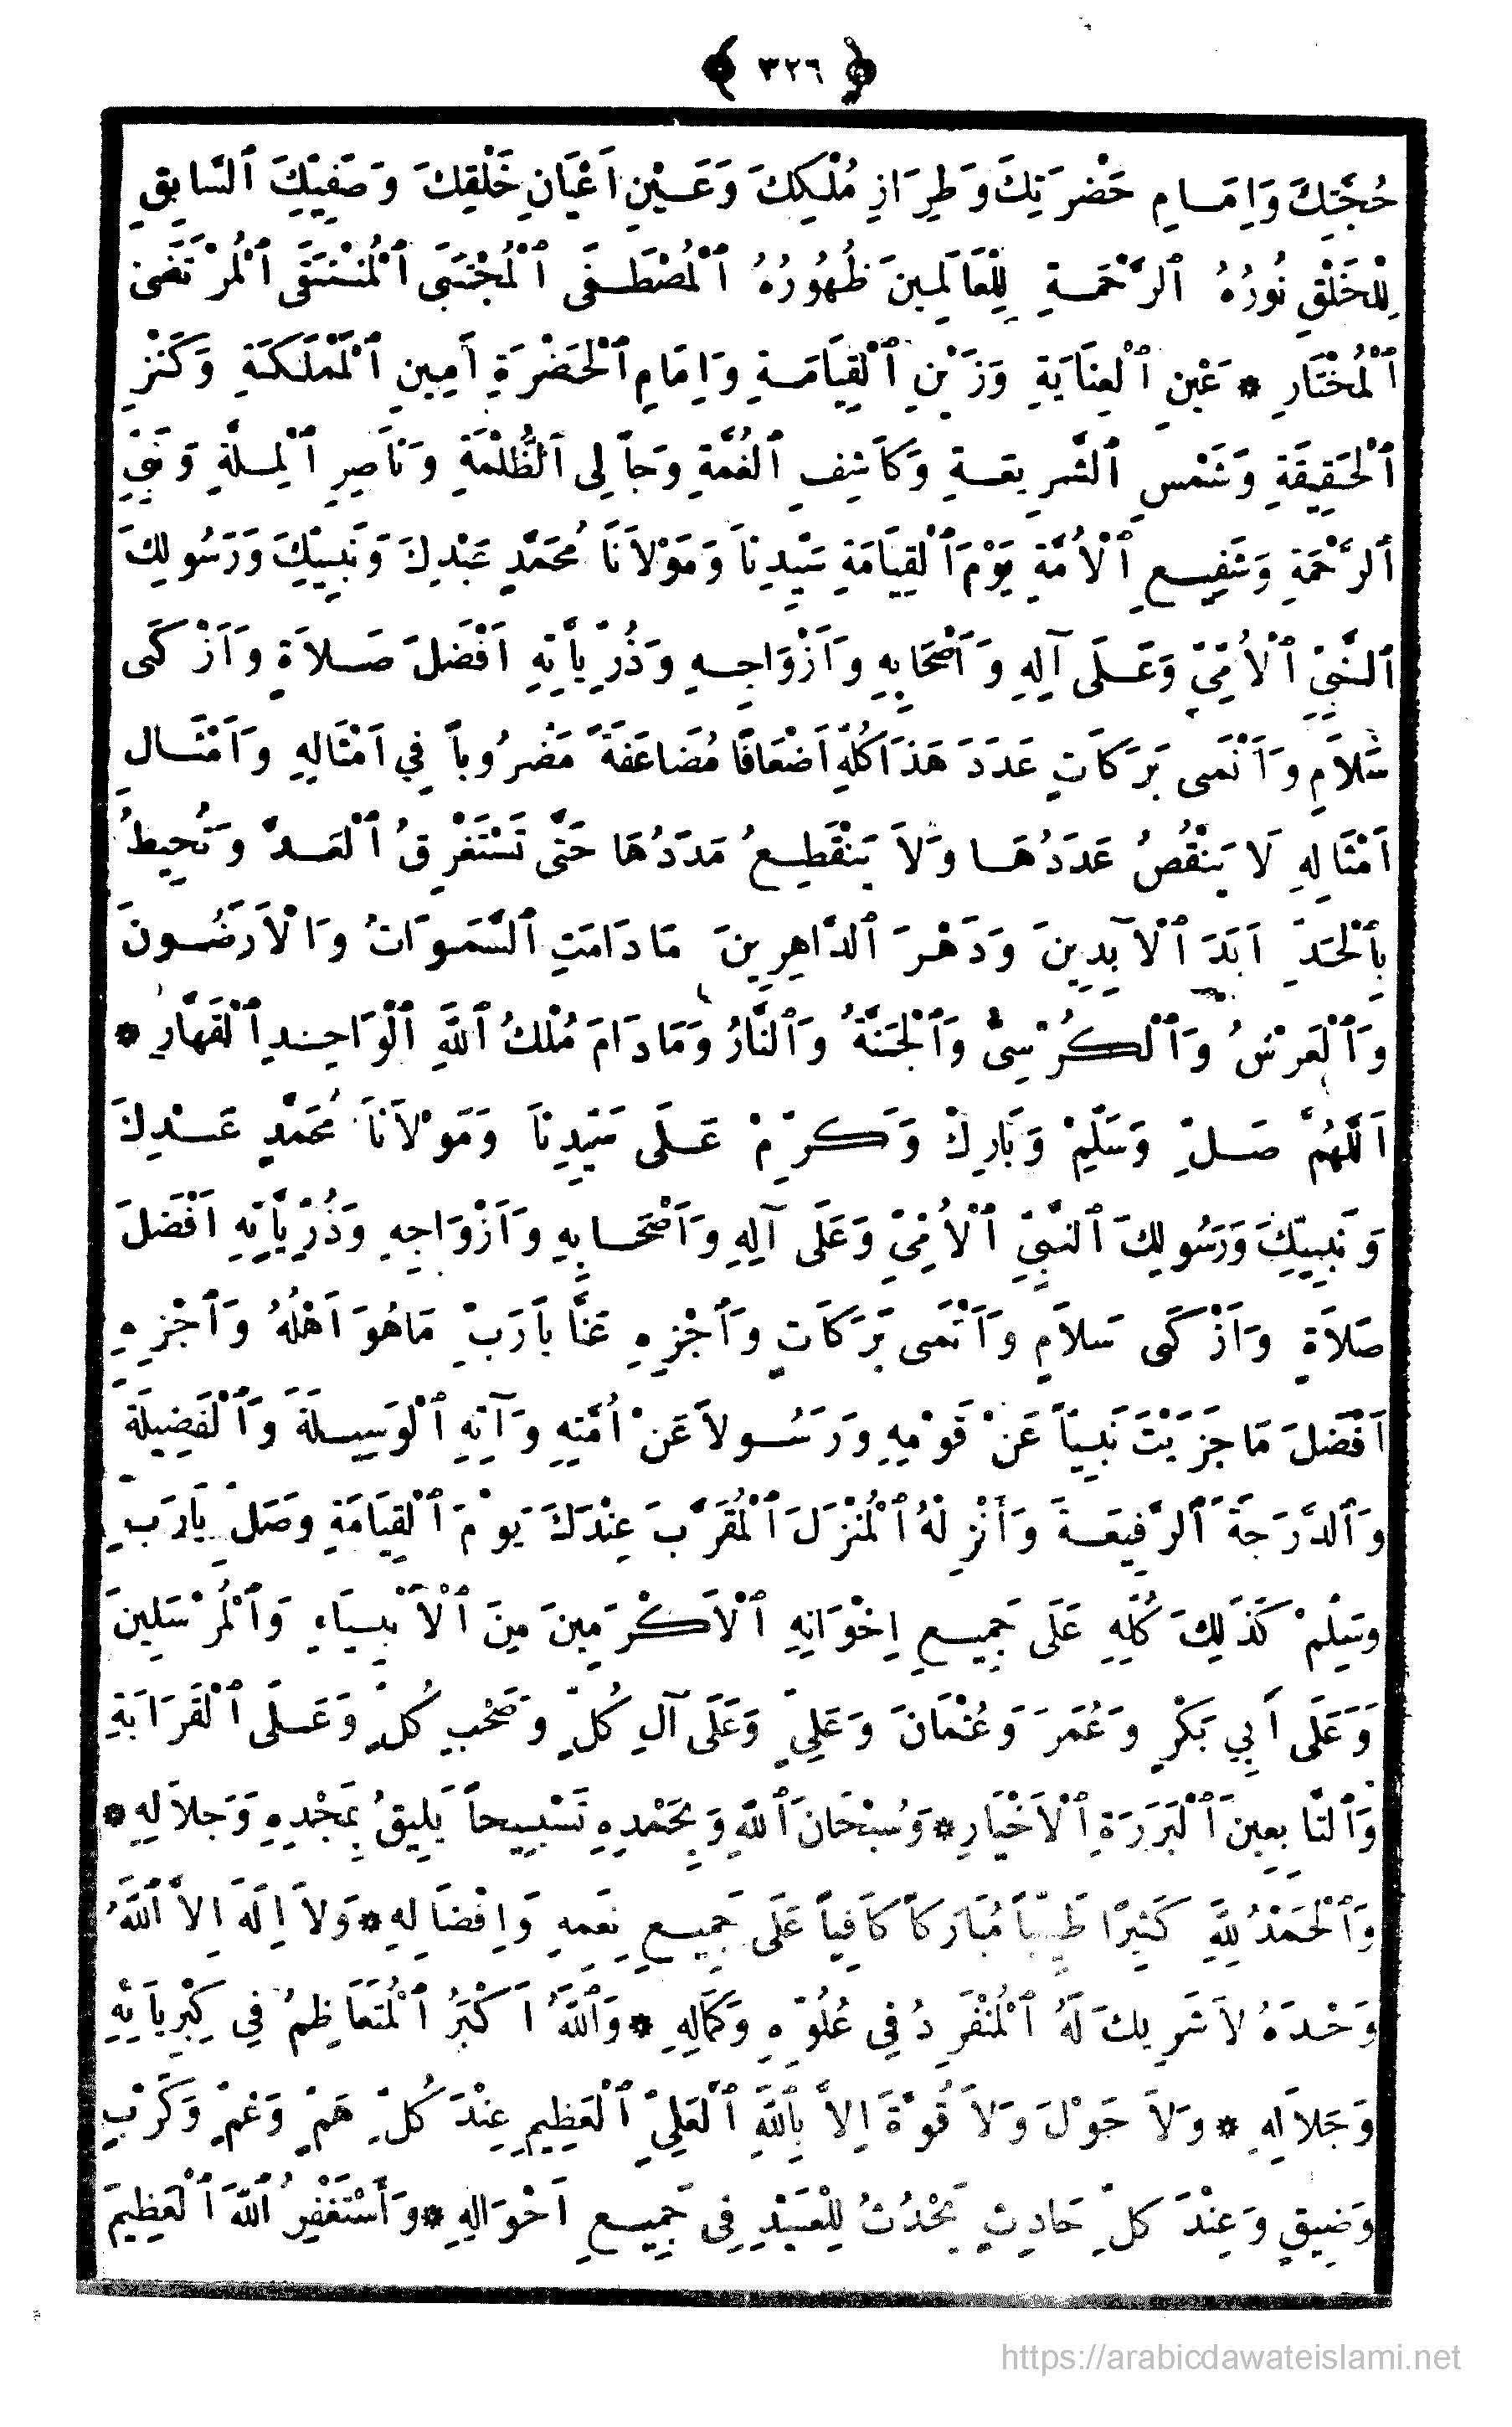 ﴿ ٣٢٦ ﴾
حُجَّتِكَ وَاِمَامِ حَضْرَتِكَ وَطِرَازِ مُلْكِكَ وَعَيْنِ اَعْيَانِ خَلْقِكَ وَصَفِيِّكَ ٱلسَّابِقِ
لِلْخَلْقِ نُورُهُ ٱلرَّحْمَةِ لِلْعَالَمِينَ ظُهُورُهُ ٱلْمُصْطَفَى ٱلْمُجْتَبَى ٱلْمُنْتَقَى ٱلْمُرْتَضَى
ٱلْمُخْتَارِ * عَيْنِ ٱلْعِنَايَةِ وَزَيْنِ ٱلْقِيَامَةِ وَاِمَامِ ٱلْحَضْرَةِ اَمِينِ ٱلْمَمْلَكَةِ وَكَنْزِ
ٱلْحَقِيقَةِ وَشَمْسِ ٱلشَّرِيعَةِ وَكَاشِفِ ٱلْغُمَّةِ وَجَالِى ٱلظُّلْمَةِ وَنَاصِرِ ٱلْمِلَّةِ وَنَبِيِّ
ٱلرَّحْمَةِ وَشَفِيعِ ٱلْاُمَّةِ يَوْمَ ٱلْقِيَامَةِ سَيِّدِنَا وَمَوْلَانَا مُحَمَّدٍ عَبْدِكَ وَنَبِيِّكَ وَرَسُولِكَ
ٱلنَّبِيِّ ٱلْاُمِّيِّ وَعَلَى آلِهِ وَاَصْحَابِهِ وَاَزْوَاجِهِ وَذُرِّيَّاتِهِ اَفْضَلَ صَلَاةٍ وَاَزْكَى
سَلَامٍ وَاَنْمَى بَرَكَاتٍ عَدَدَ هَذَا كُلِّهِ اَضْعَافًا مُضَاعَفَةً مَضْرُوباً فِي اَمْثَالِهِ وَاَمْثَالِ
اَمْثَالِهِ لَا يَنْقُصُ عَدَدُهَا وَلَا يَنْقَطِعُ مَدَدُهَا حَتَّى تَسْتَغْرِقُ ٱلْعَدَّ وَتُحِيطُ
بِٱلْحَدِّ اَبَدَ ٱلْآبِدِينَ وَدَهْرَ ٱلدَّاهِرِينَ مَا دَامَتِ ٱلسَّمَوَاتُ وَالْاَرَضُونَ
وَٱلْعَرْشُ وَٱلْكُرْسِيُّ وَٱلْجَنَّةُ وَٱلنَّارُ وَمَا دَامَ مُلْكُ ٱللَّهِ ٱلْوَاحِدِ ٱلْقَهَّارِ *
اَللَّهُمَّ صَلِّ وَسَلِّمْ وَبَارِكْ وَكَرِّمْ عَلَى سَيِّدِنَا وَمَوْلَانَا مُحَمَّدٍ عَبْدِكَ
وَنَبِيِّكَ وَرَسُولِكَ ٱلنَّبِيِّ ٱلْاُمِّيِّ وَعَلَى آلِهِ وَاَصْحَابِهِ وَاَزْوَاجِهِ وَذُرِّيَّاتِهِ اَفْضَلَ
صَلَاةٍ وَاَزْكَى سَلَامٍ وَاَنْمَى بَرَكَاتٍ وَٱجْزِهِ عَنَّا يَا رَبِّ مَا هُوَ اَهْلُهُ وَٱجْزِهِ
اَفْضَلَ مَا جَزَيْتَ نَبِيّاً عَنْ قَوْمِهِ وَرَسُولاً عَنْ اُمَّتِهِ وَآتِهِ ٱلْوَسِيلَةَ وَٱلْفَضِيلَةَ
وَٱلدَّرَجَةَ ٱلرَّفِيعَةَ وَأَنْزِلْهُ ٱلْمُنْزَلَ ٱلْمُقَرَّبَ عِنْدَكَ يَوْمَ ٱلْقِيَامَةِ وَصَلِّ يَا رَبِّ
وَسَلِّمْ كَذَلِكَ كُلِّهِ عَلَى جَمِيعِ اِخْوَانِهِ ٱلْاَكْرَمِينَ مِنَ ٱلْاَنْبِيَاءِ وَٱلْمُرْسَلِينَ
وَعَلَى أَبِي بَكْرٍ وَعُمَرَ وَعُثْمَانَ وَعَلِيٍّ وَعَلَى آلِ كُلٍّ وَصَحْبِ كُلٍّ وَعَلَى ٱلْقَرَابَةِ
وَٱلتَّابِعِينَ ٱلْبَرَرَةِ ٱلْاَخْيَارِ * وَسُبْحَانَ ٱللَّهِ وَبِحَمْدِهِ تَسْبِيحاً يَلِيقُ بِمَجْدِهِ وَجَلَالِهِ *
وَٱلْحَمْدُ لِلَّهِ كَثِيرًا طَيِّباً مُبَارَكاً كَافِياً عَلَى جَمِيعِ نِعَمِهِ وَاِفْضَالِهِ * وَلَا اِلَهَ اِلاَّ ٱللَّهُ
وَحْدَهُ لَا شَرِيكَ لَهُ ٱلْمُنْفَرِدُ فِي عُلُوِّهِ وَكَمَالِهِ * وَٱللَّهُ اَكْبَرُ ٱلْمُتَعَاظِمُ فِي كِبْرِيَائِهِ
وَجَلَالِهِ * وَلَا حَوْلَ وَلَا قُوَّةَ اِلاَّ بِٱللَّهِ ٱلْعَلِيِّ ٱلْعَظِيمِ عِنْدَ كُلِّ هَمٍّ وَغَمٍّ وَكَرْبٍ
وَضِيقٍ وَعِنْدَ كُلِّ حَادِثٍ يَحْدُثُ لِلْعَبْدِ فِي جَمِيعِ اَحْوَالِهِ * وَأَسْتَغْفِرُ ٱللَّهَ ٱلْعَظِيمَ
https://arabicdawateislami.net